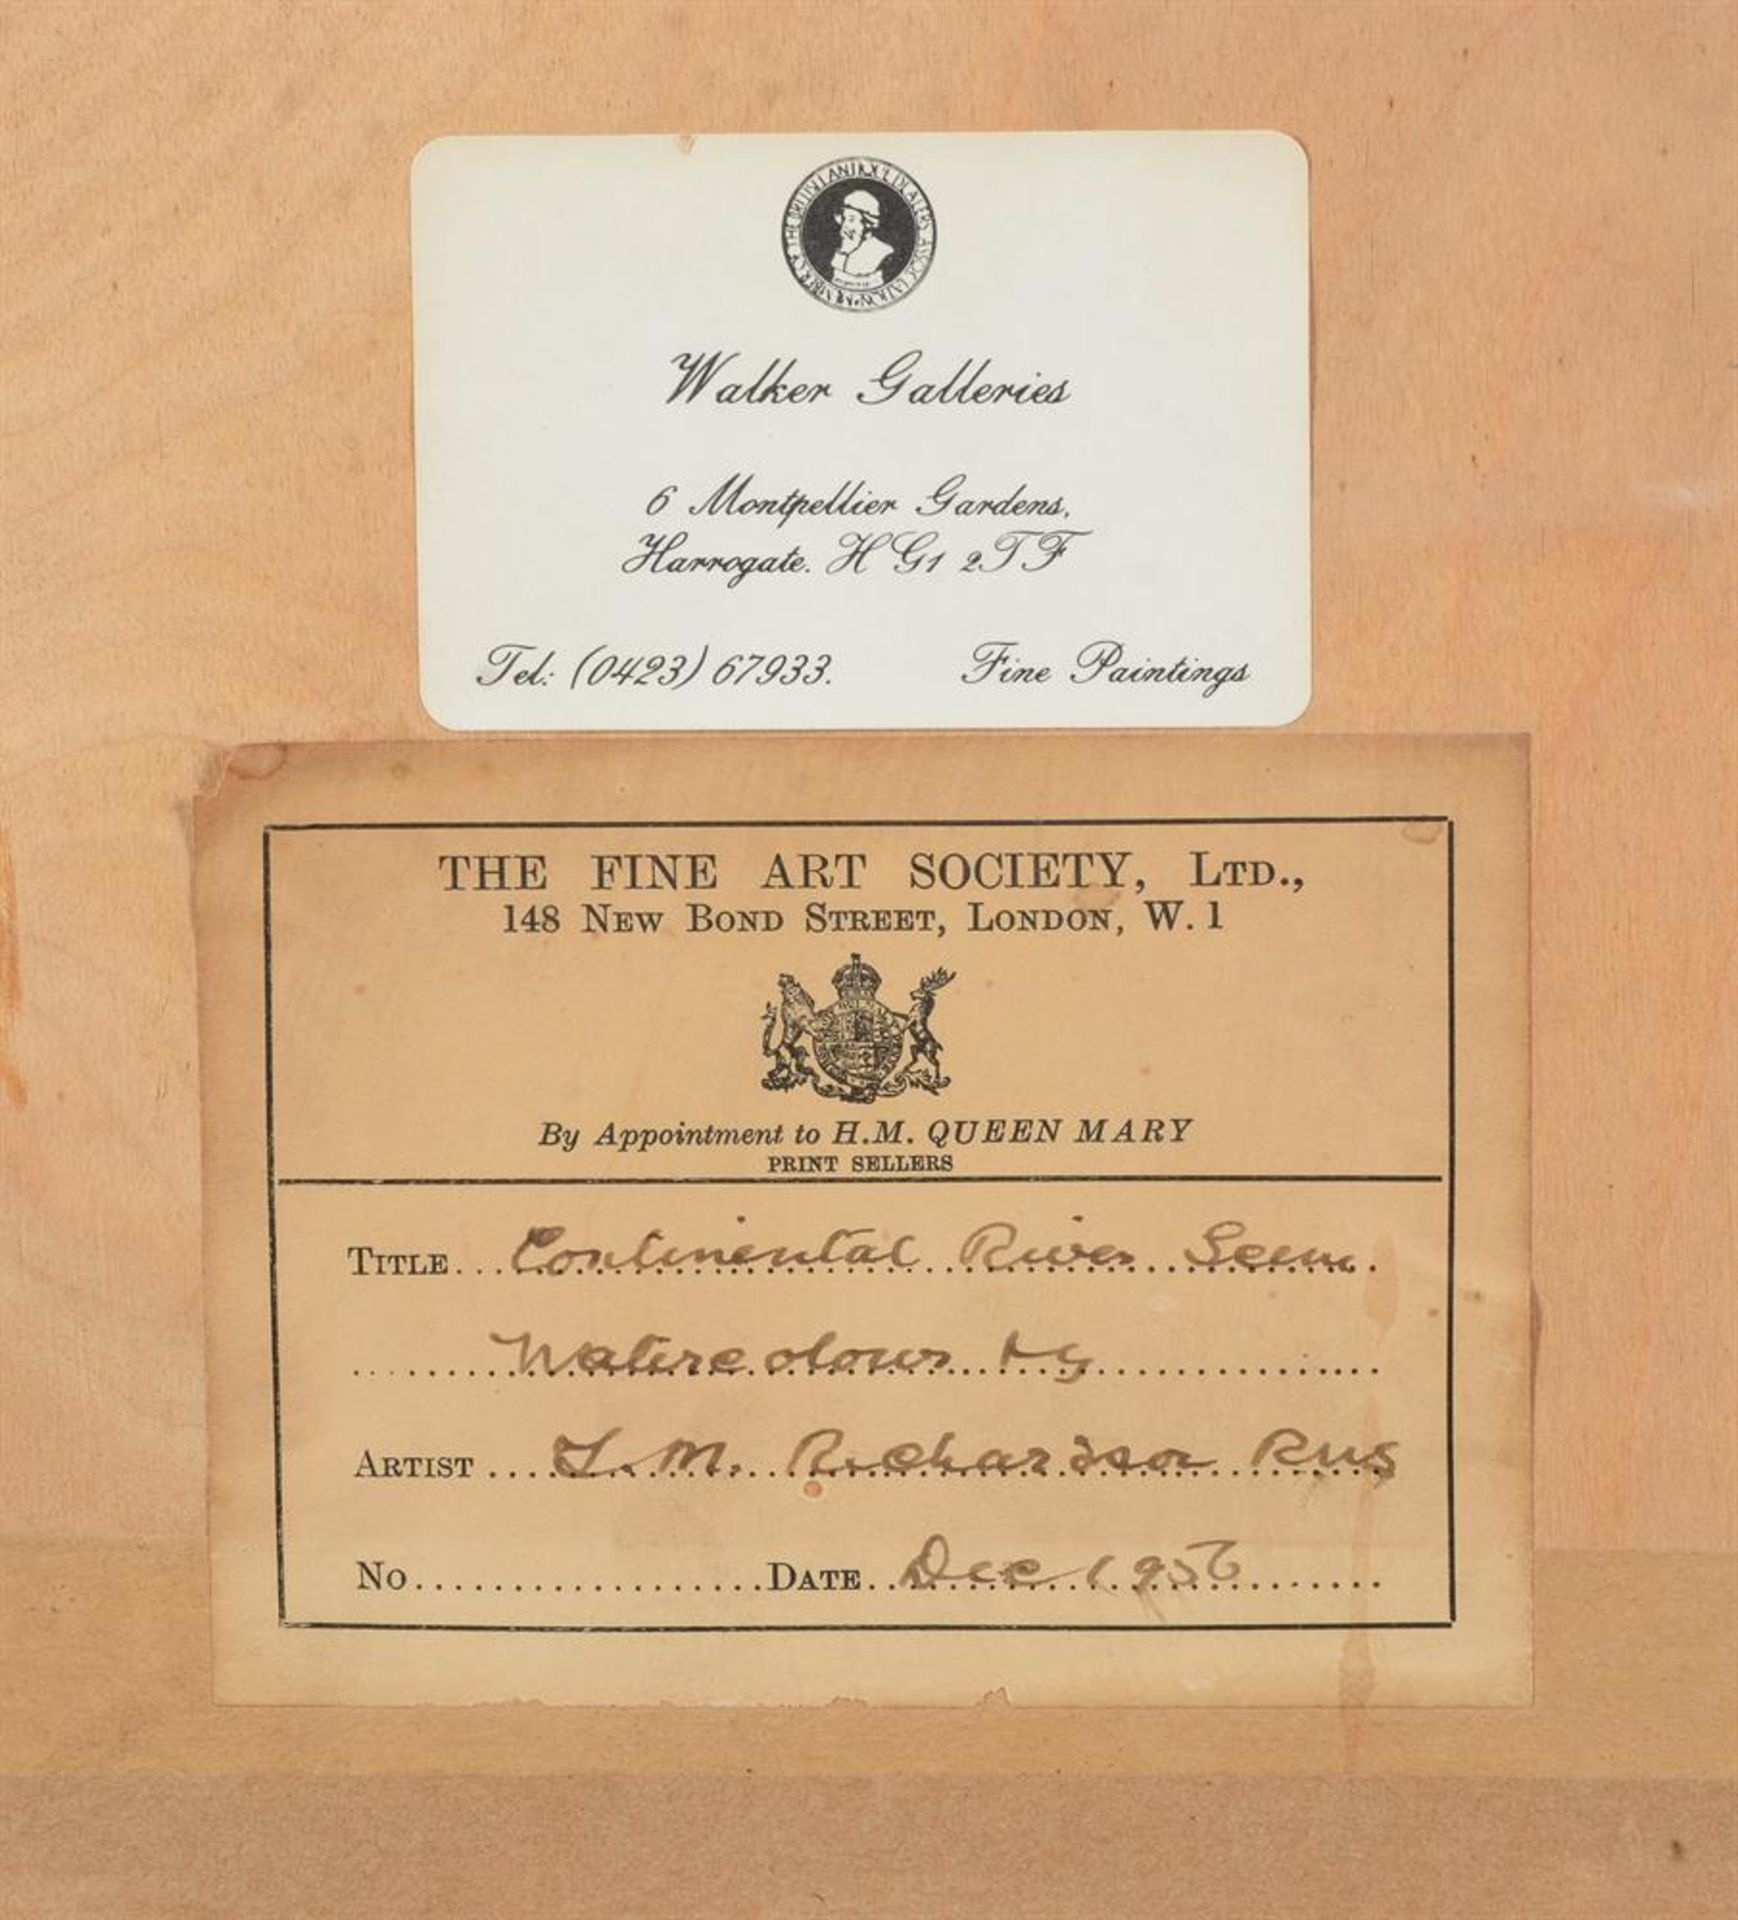 MEMBER OF THE BRITISH ANTIQUE DEALERS ASSOCIATION
Walker Galleries
6 Montpellier Gardens,
Harrogate. HG1 2TF
Tel: (0423) 67933.
Fine Paintings
THE FINE ART SOCIETY, LTD.,
148 NEW BOND STREET, LONDON, W. 1
By Appointment to H.M. QUEEN MARY
PRINT SELLERS
TITLE Continental River Scene
Watercolour by
ARTIST T. M. Richardson RWS
NO DATE Dec 1956